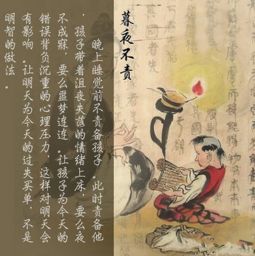 暮夜不责
晚上睡觉前不责备孩子。此时责备他
，孩子带着沮丧失落的情绪上床，要么夜
不成寐，要么噩梦连连，让孩子为今天的
错误背负沉重的心理压力，这样对明天会
有影响。让明天为今天的过失买单，不是
明智的做法。